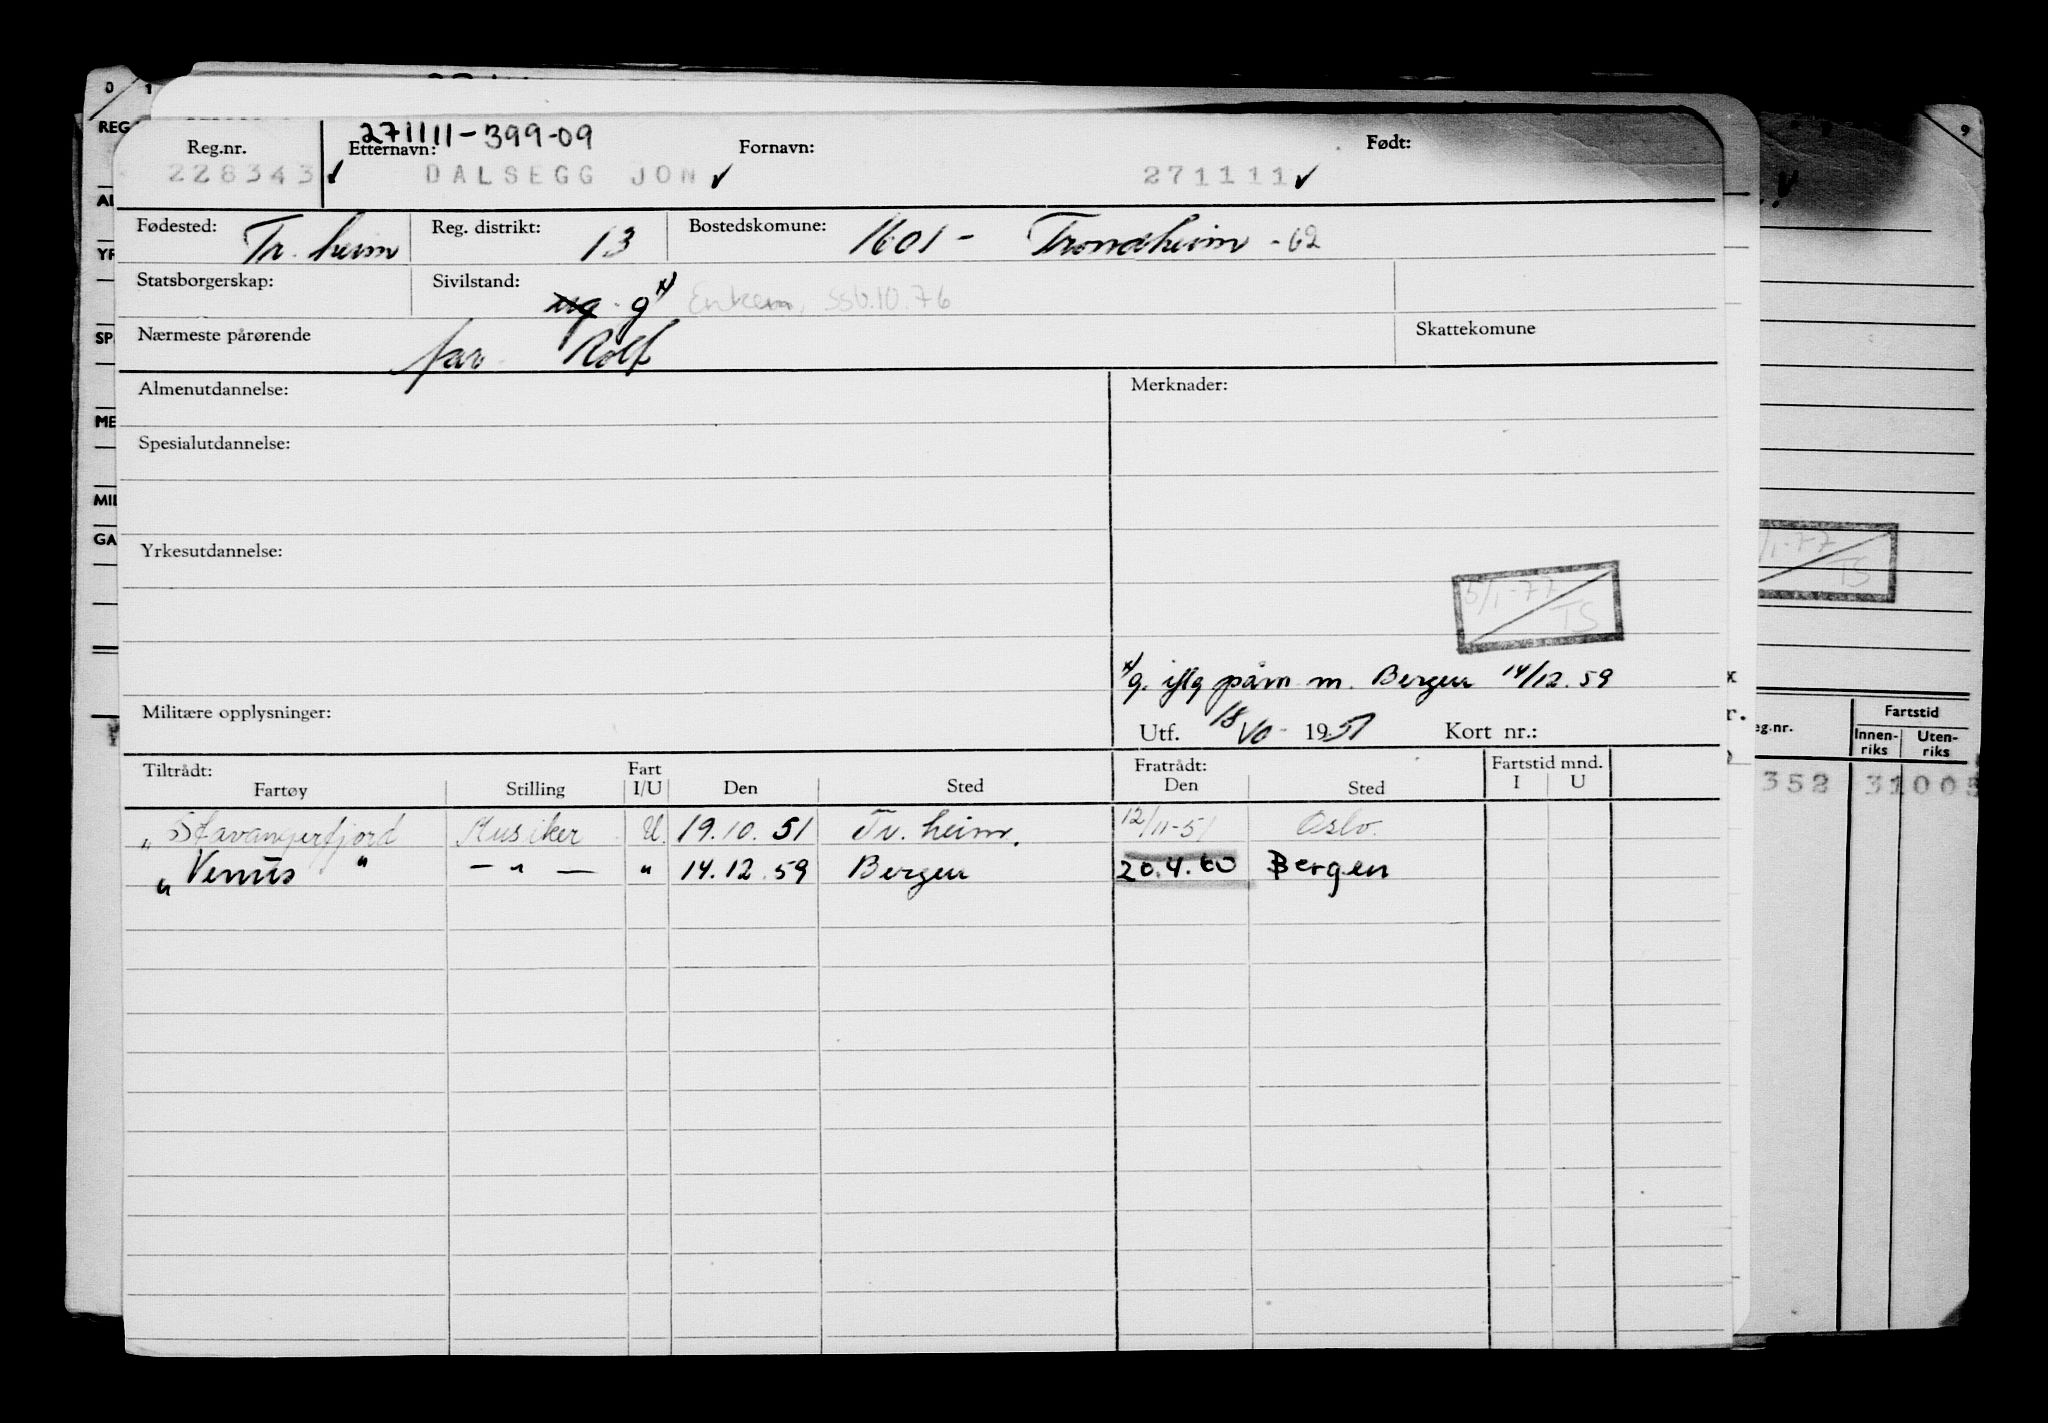 271111-399-09
Reg.nr. Etternavn: Fornavn: Født:
228343 DALSEGG JON 271111
Fødested: Tr.heim Reg. distrikt: 13 Bostedskomune: 1601 - Trondheim -62
Statsborgerskap: Sivilstand: ug. g x) Enkem, SSB.10.76
Nærmeste pårørende far Rolf Skattekomune
Almenutdannelse: Merknader:
Spesialutdannelse:
Yrkesutdannelse:
5/1-77 TS
x) g. iflg påm. m. Bergen 14/12.59
Militære opplysninger: Utf. 18/10 - 1951 Kort nr.:
Tiltrådt: Fart Fratrådt: Fartstid mnd.
Fartøy Stilling I/U Den Sted Den Sted I U
"Stavangerfjord Musiker U. 19.10.51 Tr.heim. 12/11-51 Oslo.
"Venus" - " - " 14.12.59 Bergen 20.4.60 Bergen
0 1
REG
YR
ME
MIL
GA
9
/1-77 TS
eg.nr. Fartstid
Innen-riks Uten-riks
352 31005